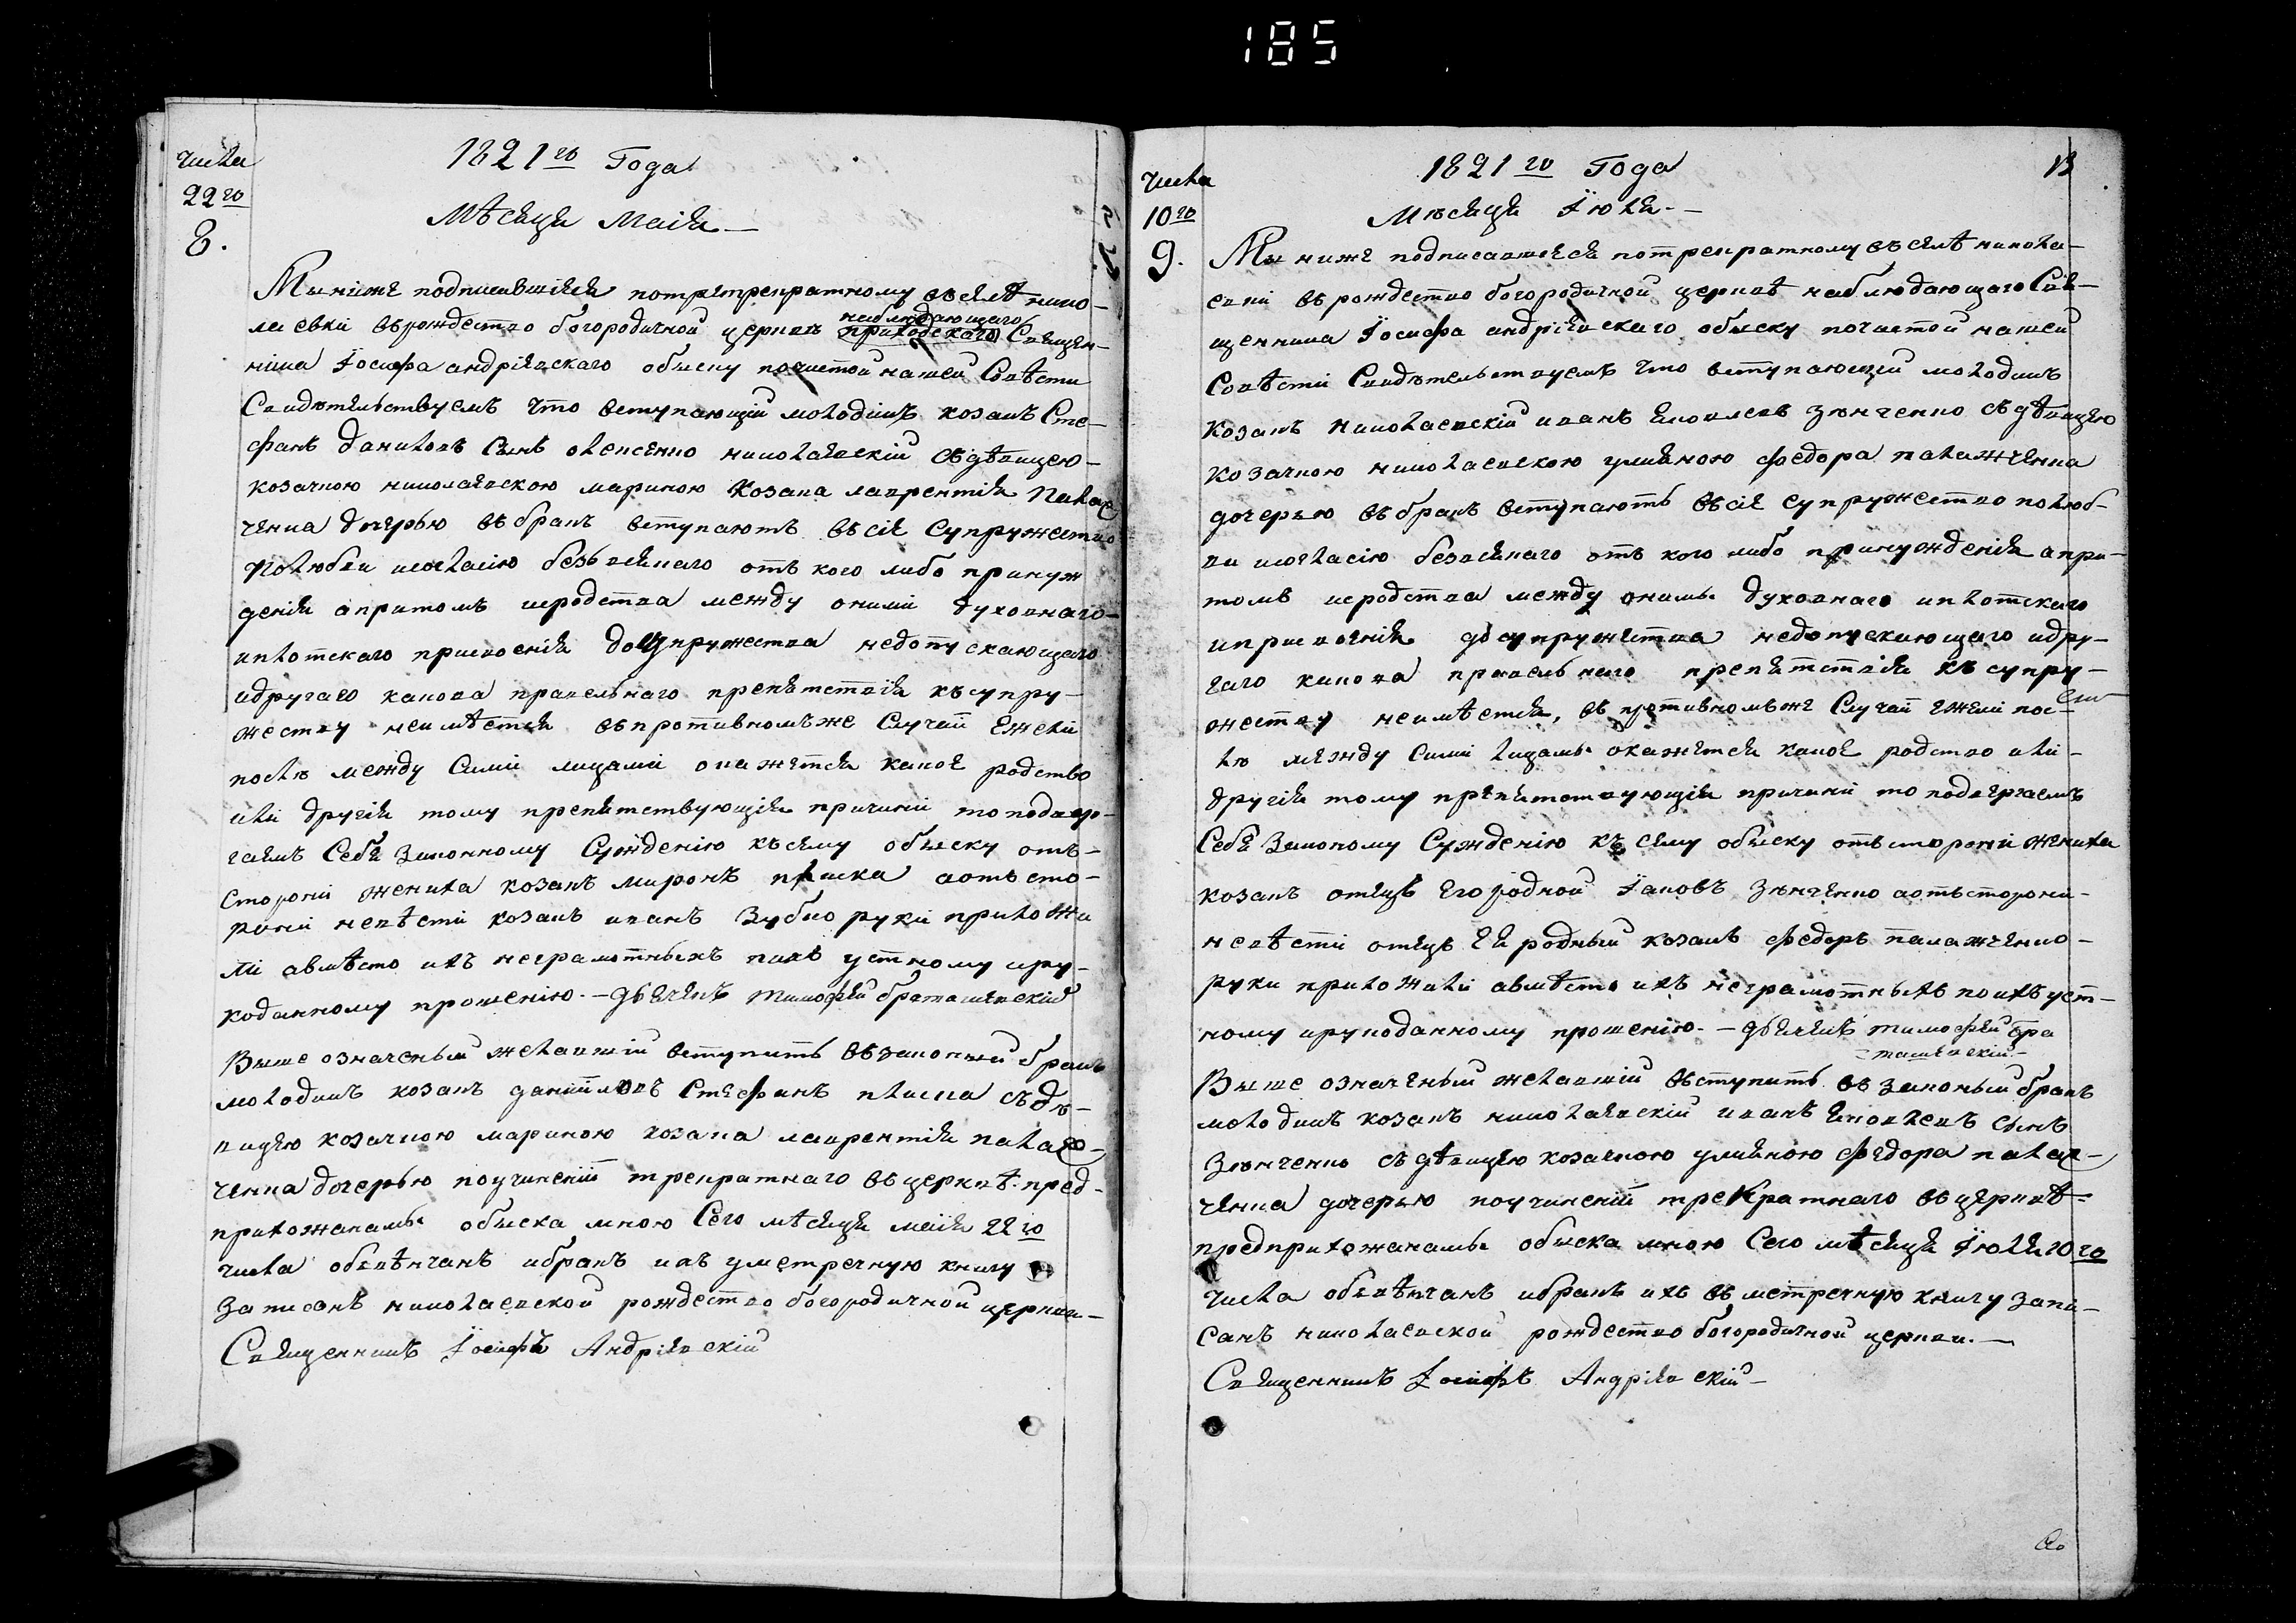 185
числа
22го
8.
1821го Года
Мѣсяця Маія —
Мы ниже подписавшіяся потретрекратному въ селѣ нико-
лаевки въ рождество богородичной церкве приходскаго наблюдающаго Священ-
ніка Іосифа андріевскаго обыску почистой нашей Совѣсти
Свидѣтельствуемъ что вступающій молодикъ козакъ Сте-
фанъ даниловъ Сынъ николаевскій съ дѣвицею-
козачкою николаевскою мариною козака лаврентія палаж
ченка дочерью въ бракъ вступаютъ въ сіе супружество
полюбви исогласію безъ всякаго отъ кого либо принуж
денія апритомъ иеродства между оними духовнаго-
иплотскаго присвоенія до супружества недопускающаго
идругаго какова правельнаго препятствія къ супру-
жеству неимѣется въ противномъ же Случаи Ежели
послѣ между Сими лицами окажется какое родство
или другія тому препятствующія причини то подвер-
гаемъ Себя Законному Сужденію къ сему обыску отъ-
стороні жениха козакъ миронъ аотъ сто-
роні невѣсти козакъ иванъ Зубко руки приложи
ли авмѣсто ихъ неграмотныхъ поихъ устному иру-
коданному прошенію. — дьячекъ тимофѣй браташевскій
Выше означеный желавшій вступить въ законый бракъ
молодикъ козакъ даниловъ Стефанъ съ дѣ-
вицею козачкою мариною козака лаврентія палаж-
ченка дочерью поучиненіи трекратнаго въ церквѣ пред-
прихожанамы обыска мною Сего мѣсяця маія 22го
числа обвѣнчанъ ибракъ ихъ уметречную книгу
записанъ николаевской рождество богородичной церкви-
Священникъ Іосифъ Андріевскій
числа
10го
9.
1821го Года
13
Мѣсяця Іюля. —
Мы ниже подписавшіеся потрекратному въ селѣ никола-
евки въ рождество богородичной церквѣ наблюдающаго Свя-
щенника Іосифа андріевскаго обыску почистой нашей
Совѣсти Свидѣтельствуемъ что вступающій молодикъ
козакъ николаевскій иванъ яковлевъ Зѣнченко съ дѣвицею
козачкою николаевскою улияною федора палажченка
дочерью въ бракъ вступаютъ въ сіе супружество полюб-
ви исогласію безвсякаго отъ кого либо принужденія апри-
томъ иеродства между онимы духовнаго иплотскаго
иприсвоенія до супружества недопускающаго идру-
гаго какова правельнаго препятствія къ супру-
жеству неимѣется, въ противномъже Случаи ежели пос-
лѣ между Сими лицамы окажется какое родство или-
другія тому препятствующія причини то подвергаемъ
Себя Законому Сужденію къ сему обыску отъ стороні жениха
козакъ отецъ его родной Іаковъ Зѣнченко аотъ сторони-
невѣсти отецъ Ея родный козакъ федоръ палажченко-
руки приложили авмѣсто ихъ неграмотныхъ поихъ уст-
ному ирукоданному прошенію. — дьячекъ тимофѣй бра
ташевскій. —
Выше означеный желавшій вступить въ законый бракъ
молодикъ козакъ николаевскій иванъ яковлевъ сынъ
Зѣнченко съ дѣвицею козачкою улияною федора палаж-
ченка дочерью поучиненіи трекратнаго въ церквѣ-
предприхожанамы обыска мною Сего мѣсяця Іюля 10го
числа обвѣнчанъ ибракъ ихъ въ метречную книгу запи-
санъ николаевской рождество богородичной церкви. —
Священникъ Іосифъ Андріевскій —